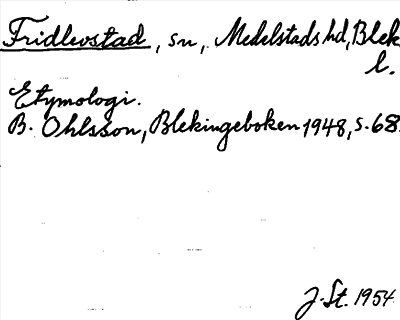 Fridlevstad, sn, Medelstads hd, Blek
l.
Etymologi.
B. Ohlsson, Blekingeboken 1948, s. 68.
J. St. 1954